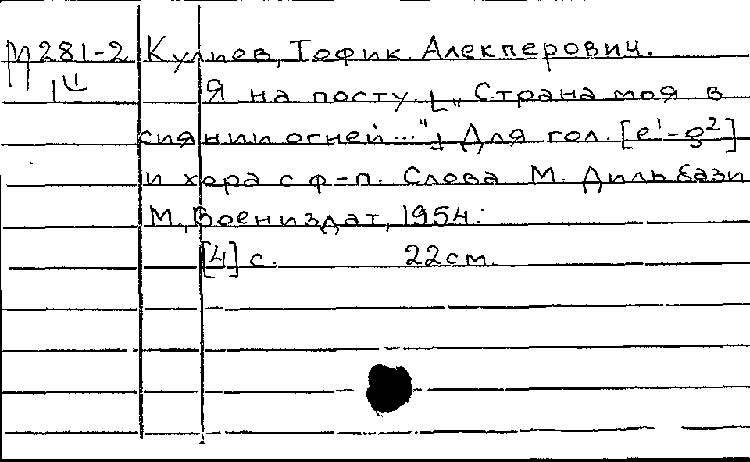 М281-2 Кулиев, Тофик Алекперович.
Я на посту. [„Страна моя в
сиянии огней..."] Для гол. [e¹-g²]
и хора с ф-п. Слова М. Дильбази
М., Воениздат, 1954.
[4] с. 22см.